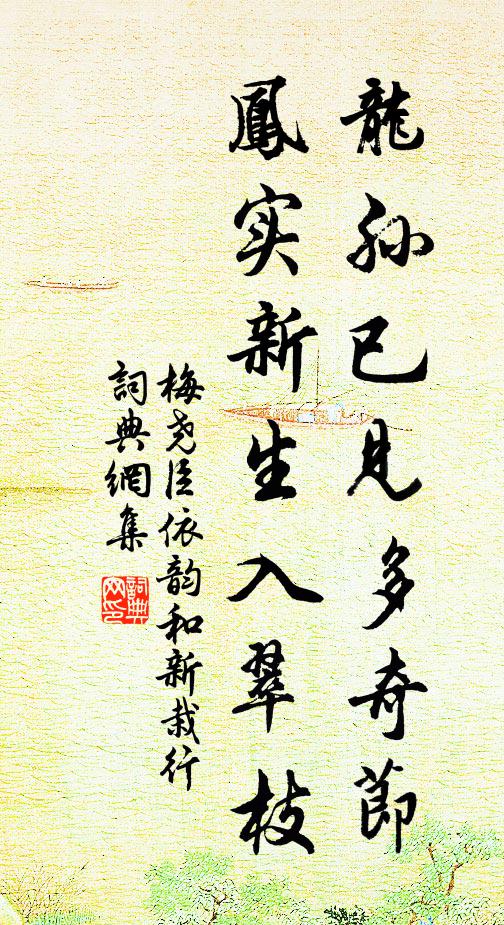 龍孙已見多奇節
鳳实新生入翠枝
梅尧臣依韵和新栽行
詞典網集
詞典网印